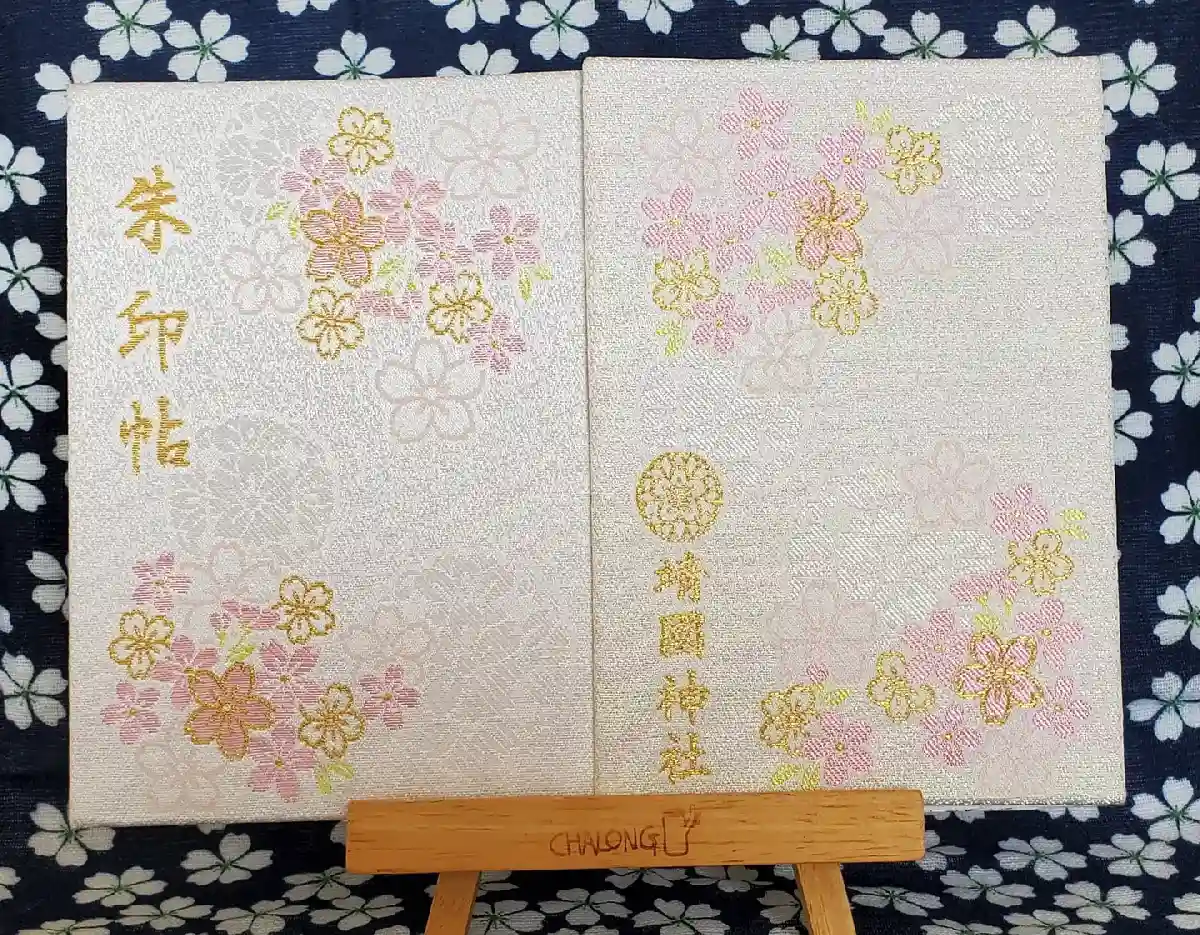 朱印帖
靖國神社
CHALONG